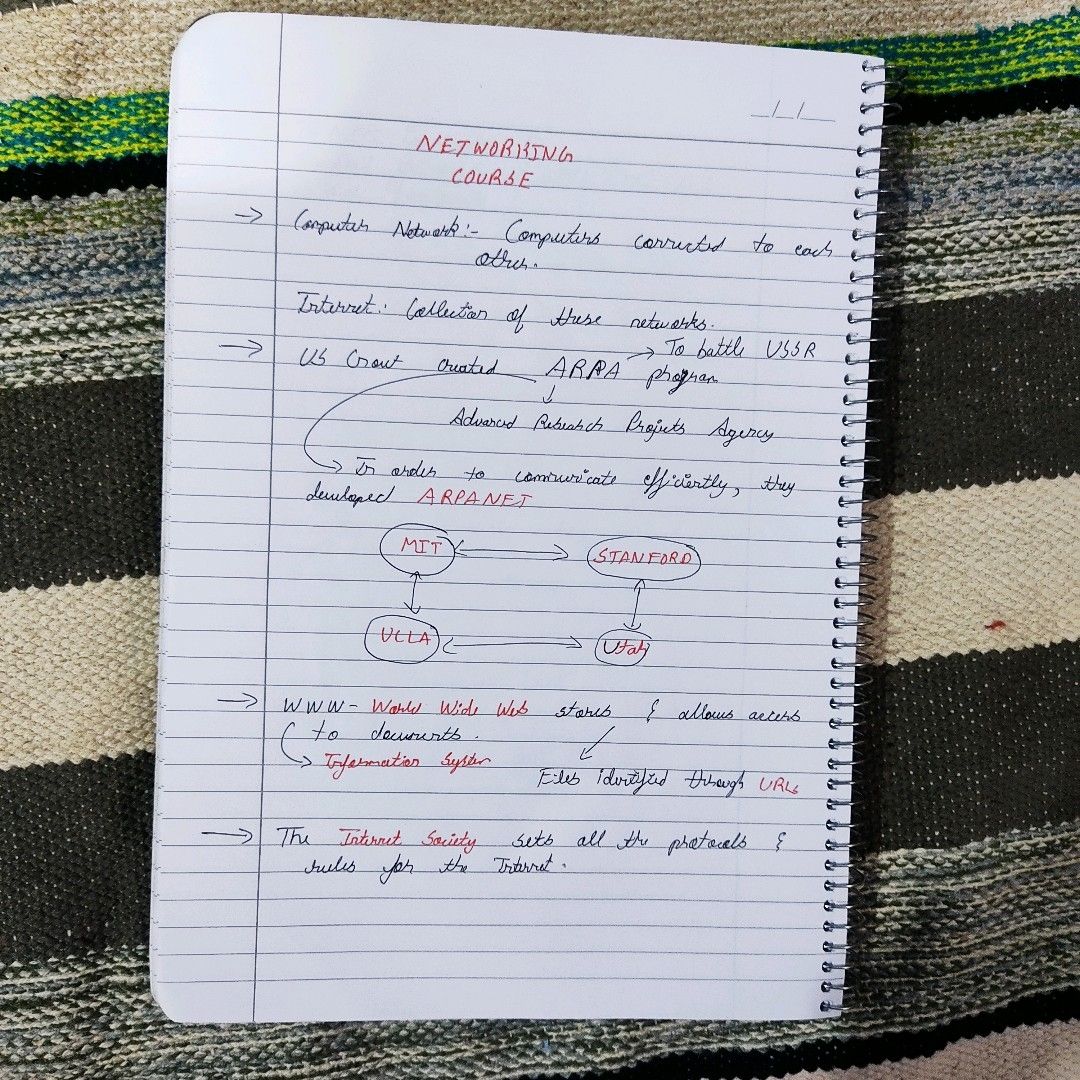 _/_/_
NETWORKING
COURSE
→ Computer Network:- Computers connected to each
other.
Internet: Collection of these networks.
→ To battle USSR
→ US Govt created ARPA program
↓
Advanced Research Projects Agency
→ In order to communicate efficiently, they
developed ARPANET
MIT ↔ STANFORD
UCLA ↔ Utah
→ WWW- World Wide Web stores & allows access
to documents.
→ Information System
Files identified through URLs
→ The Internet Society sets all the protocols &
rules for the Internet.